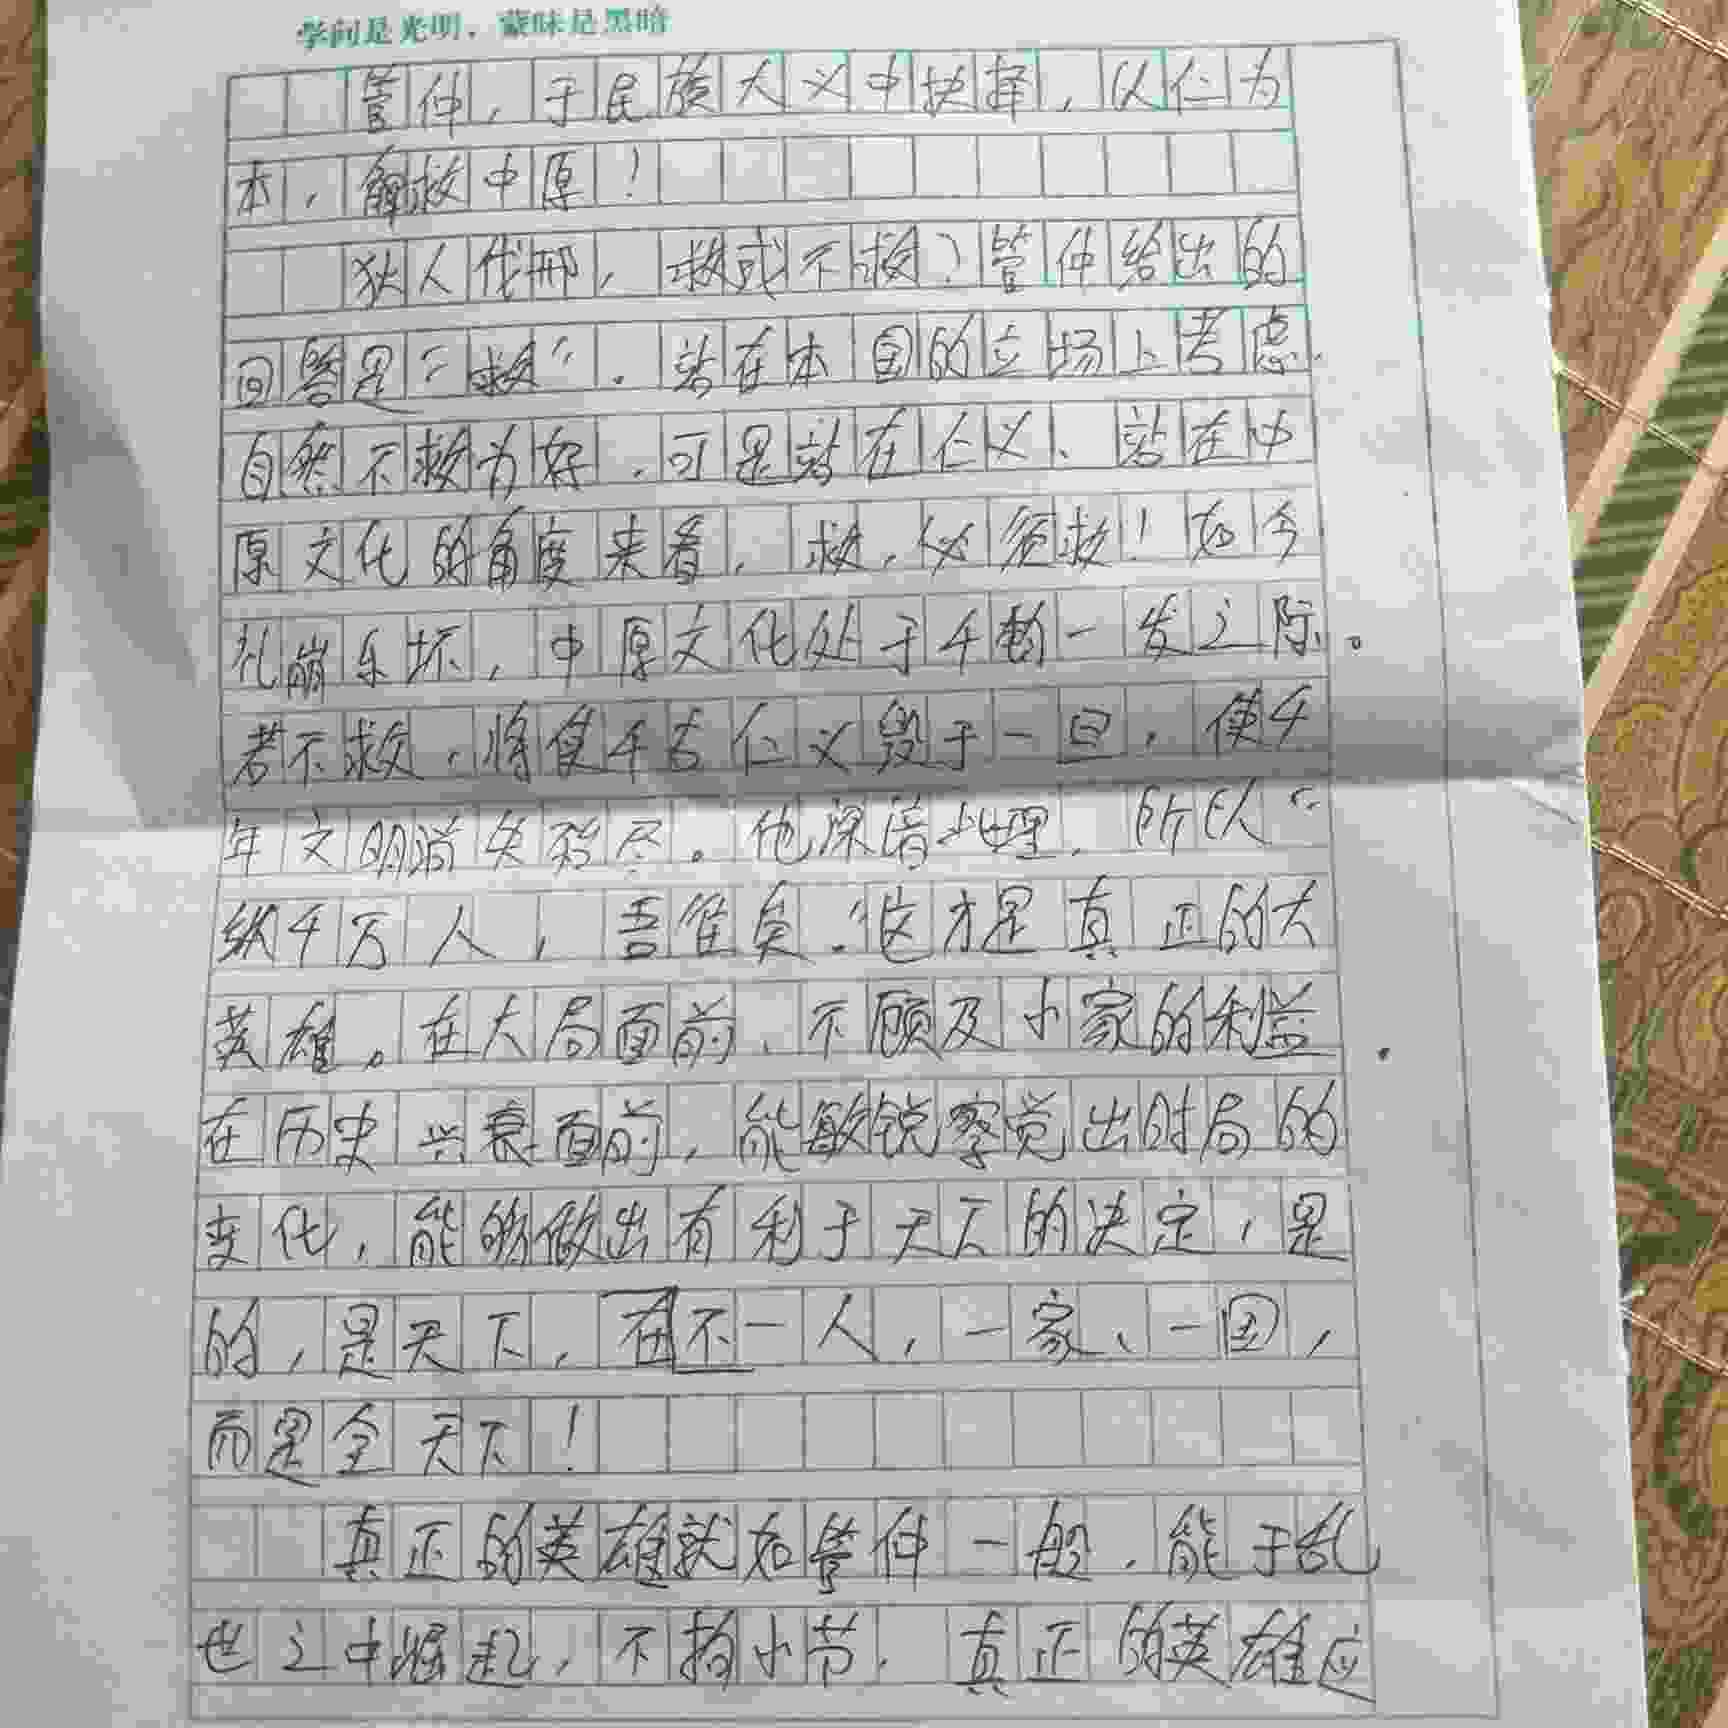 学问是光明，蒙昧是黑暗
管仲，于民族大义中抉择，以仁为
本，解救中原！
狄人伐邢，救或不救？管仲给出的
回答是“救”。站在本国的立场上考虑，
自然不救为好，可是站在仁义、站在中
原文化的角度来看，救，必须救！如今
礼崩乐坏，中原文化处于千钧一发之际。
若不救，将使千古仁义毁于一旦，使千
年文明消失殆尽。他深谙此理，所以“
纵千万人，吾往矣。”这才是真正的大
英雄。在大局面前，不顾及小家的利益
在历史兴衰面前，能敏锐察觉出时局的
变化，能够做出有利于天下的决定，是
的，是天下，在不一人，一家、一国，
而是全天下！
真正的英雄就如管仲一般，能于乱
世之中崛起，不拘小节，真正的英雄应